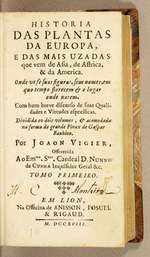 HISTORIA
DAS PLANTAS
DA EUROPA,
E DAS MAIS UZADAS
que vem de Asia, de Affrica,
& da America.
Onde ve se suas figuras, seus nomes, em
que tempo florecem, & o lugar
onde nacem.
Com hum breve discurso de suas Qualidades
e Virtudes especificas.
Dividida em dois volumes, & acomodada
na forma do grande Pinax de Gaspar
Bauhino.
Por JOAON VIGIER,
Offerecida
Ao Em.mo S.or Cardeal D. NUNNO
da CUNHA Inquisidor Geral &c.
TOMO PRIMEIRO.
EM LION,
Na Officina de ANISSON, POSUEL
& RIGAUD.
M. DCCXVIII.